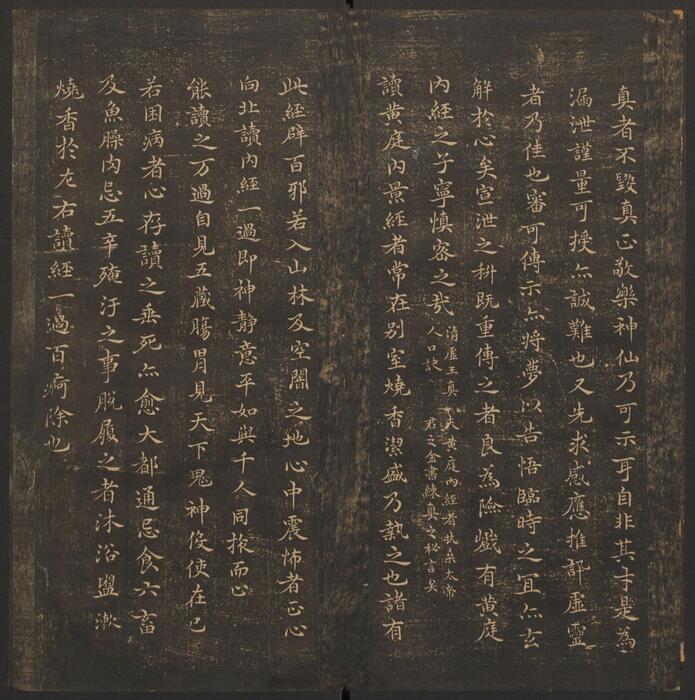 真者不毀真正敬樂神仙乃可示耳自非其才是為
漏泄謹量可授亦誠難也又先求感應推訴虛靈
者乃佳也審可傳示亦將夢以告悟臨時之宜亦玄
解於心矣宣泄之科既重傳之者良為險巇有黃庭
內經之子寧慎密之哉
清虛王真
人口訣
夫黃庭內經者扶桑太帝
君之金書練真之秘言矣
讀黃庭內景經者常在別室燒香潔盛乃執之也諸有
此經辟百邪若入山林及空闇之地心中震怖者正心
向北讀內經一過即神靜意平如與千人同旅而心
能讀之万過自見五藏腸胃見天下鬼神役使在己
若困病者心存讀之垂死亦愈大都通忌食六畜
及魚臊肉忌五辛殗汙之事脫履之者沐浴盥漱
燒香於左右讀經一過百痾除也